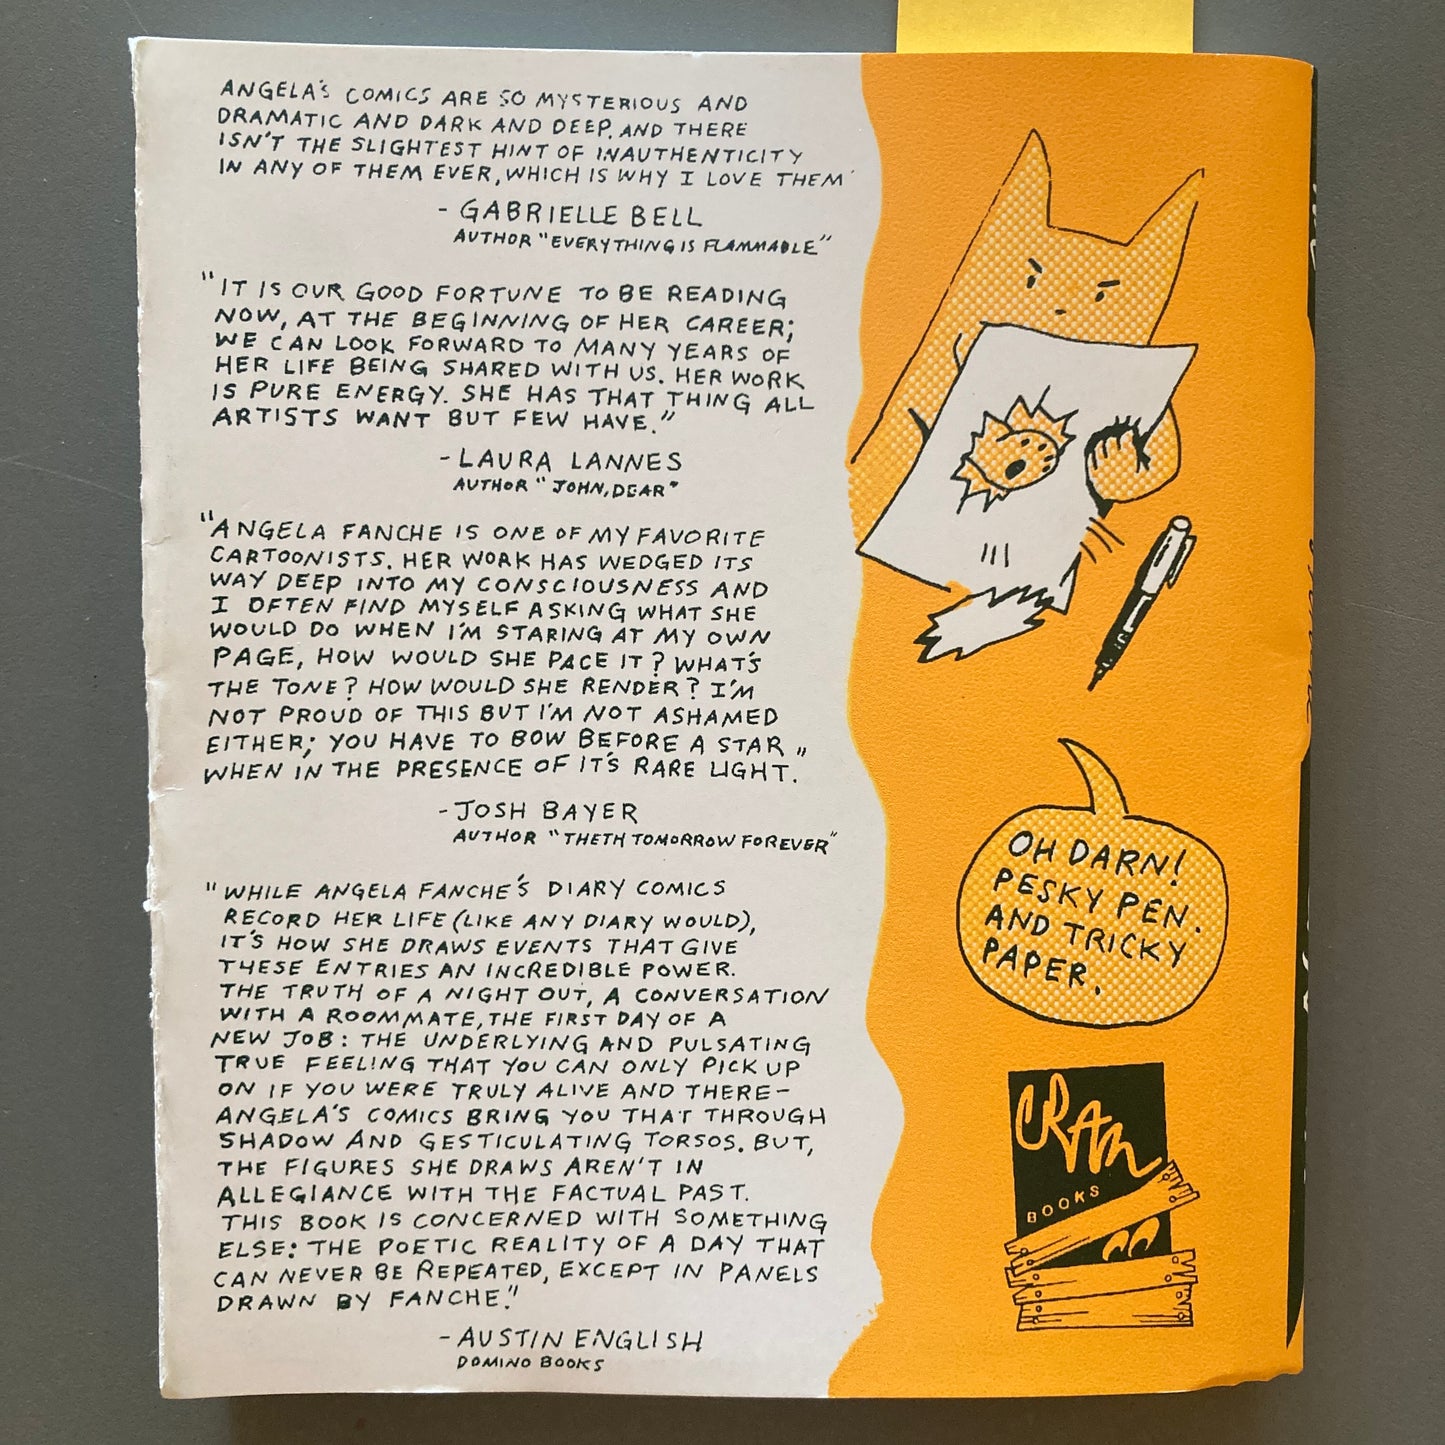 ANGELA'S COMICS ARE SO MYSTERIOUS AND
DRAMATIC AND DARK AND DEEP, AND THERE
ISN'T THE SLIGHTEST HINT OF INAUTHENTICITY
IN ANY OF THEM EVER, WHICH IS WHY I LOVE THEM
- GABRIELLE BELL
AUTHOR "EVERYTHING IS FLAMMABLE"
"IT IS OUR GOOD FORTUNE TO BE READING
NOW, AT THE BEGINNING OF HER CAREER;
WE CAN LOOK FORWARD TO MANY YEARS OF
HER LIFE BEING SHARED WITH US. HER WORK
IS PURE ENERGY. SHE HAS THAT THING ALL
ARTISTS WANT BUT FEW HAVE."
- LAURA LANNES
AUTHOR "JOHN, DEAR"
"ANGELA FANCHE IS ONE OF MY FAVORITE
CARTOONISTS. HER WORK HAS WEDGED ITS
WAY DEEP INTO MY CONSCIOUSNESS AND
I OFTEN FIND MYSELF ASKING WHAT SHE
WOULD DO WHEN I'M STARING AT MY OWN
PAGE, HOW WOULD SHE PACE IT? WHAT'S
THE TONE? HOW WOULD SHE RENDER? I'M
NOT PROUD OF THIS BUT I'M NOT ASHAMED
EITHER; YOU HAVE TO BOW BEFORE A STAR
WHEN IN THE PRESENCE OF IT'S RARE LIGHT."
- JOSH BAYER
AUTHOR "THETH TOMORROW FOREVER"
"WHILE ANGELA FANCHE'S DIARY COMICS
RECORD HER LIFE (LIKE ANY DIARY WOULD),
IT'S HOW SHE DRAWS EVENTS THAT GIVE
THESE ENTRIES AN INCREDIBLE POWER.
THE TRUTH OF A NIGHT OUT, A CONVERSATION
WITH A ROOMMATE, THE FIRST DAY OF A
NEW JOB: THE UNDERLYING AND PULSATING
TRUE FEELING THAT YOU CAN ONLY PICK UP
ON IF YOU WERE TRULY ALIVE AND THERE-
ANGELA'S COMICS BRING YOU THAT THROUGH
SHADOW AND GESTICULATING TORSOS. BUT,
THE FIGURES SHE DRAWS AREN'T IN
ALLEGIANCE WITH THE FACTUAL PAST.
THIS BOOK IS CONCERNED WITH SOMETHING
ELSE: THE POETIC REALITY OF A DAY THAT
CAN NEVER BE REPEATED, EXCEPT IN PANELS
DRAWN BY FANCHE."
- AUSTIN ENGLISH
DOMINO BOOKS
OH DARN!
PESKY PEN.
AND TRICKY
PAPER.
CRAM
BOOKS